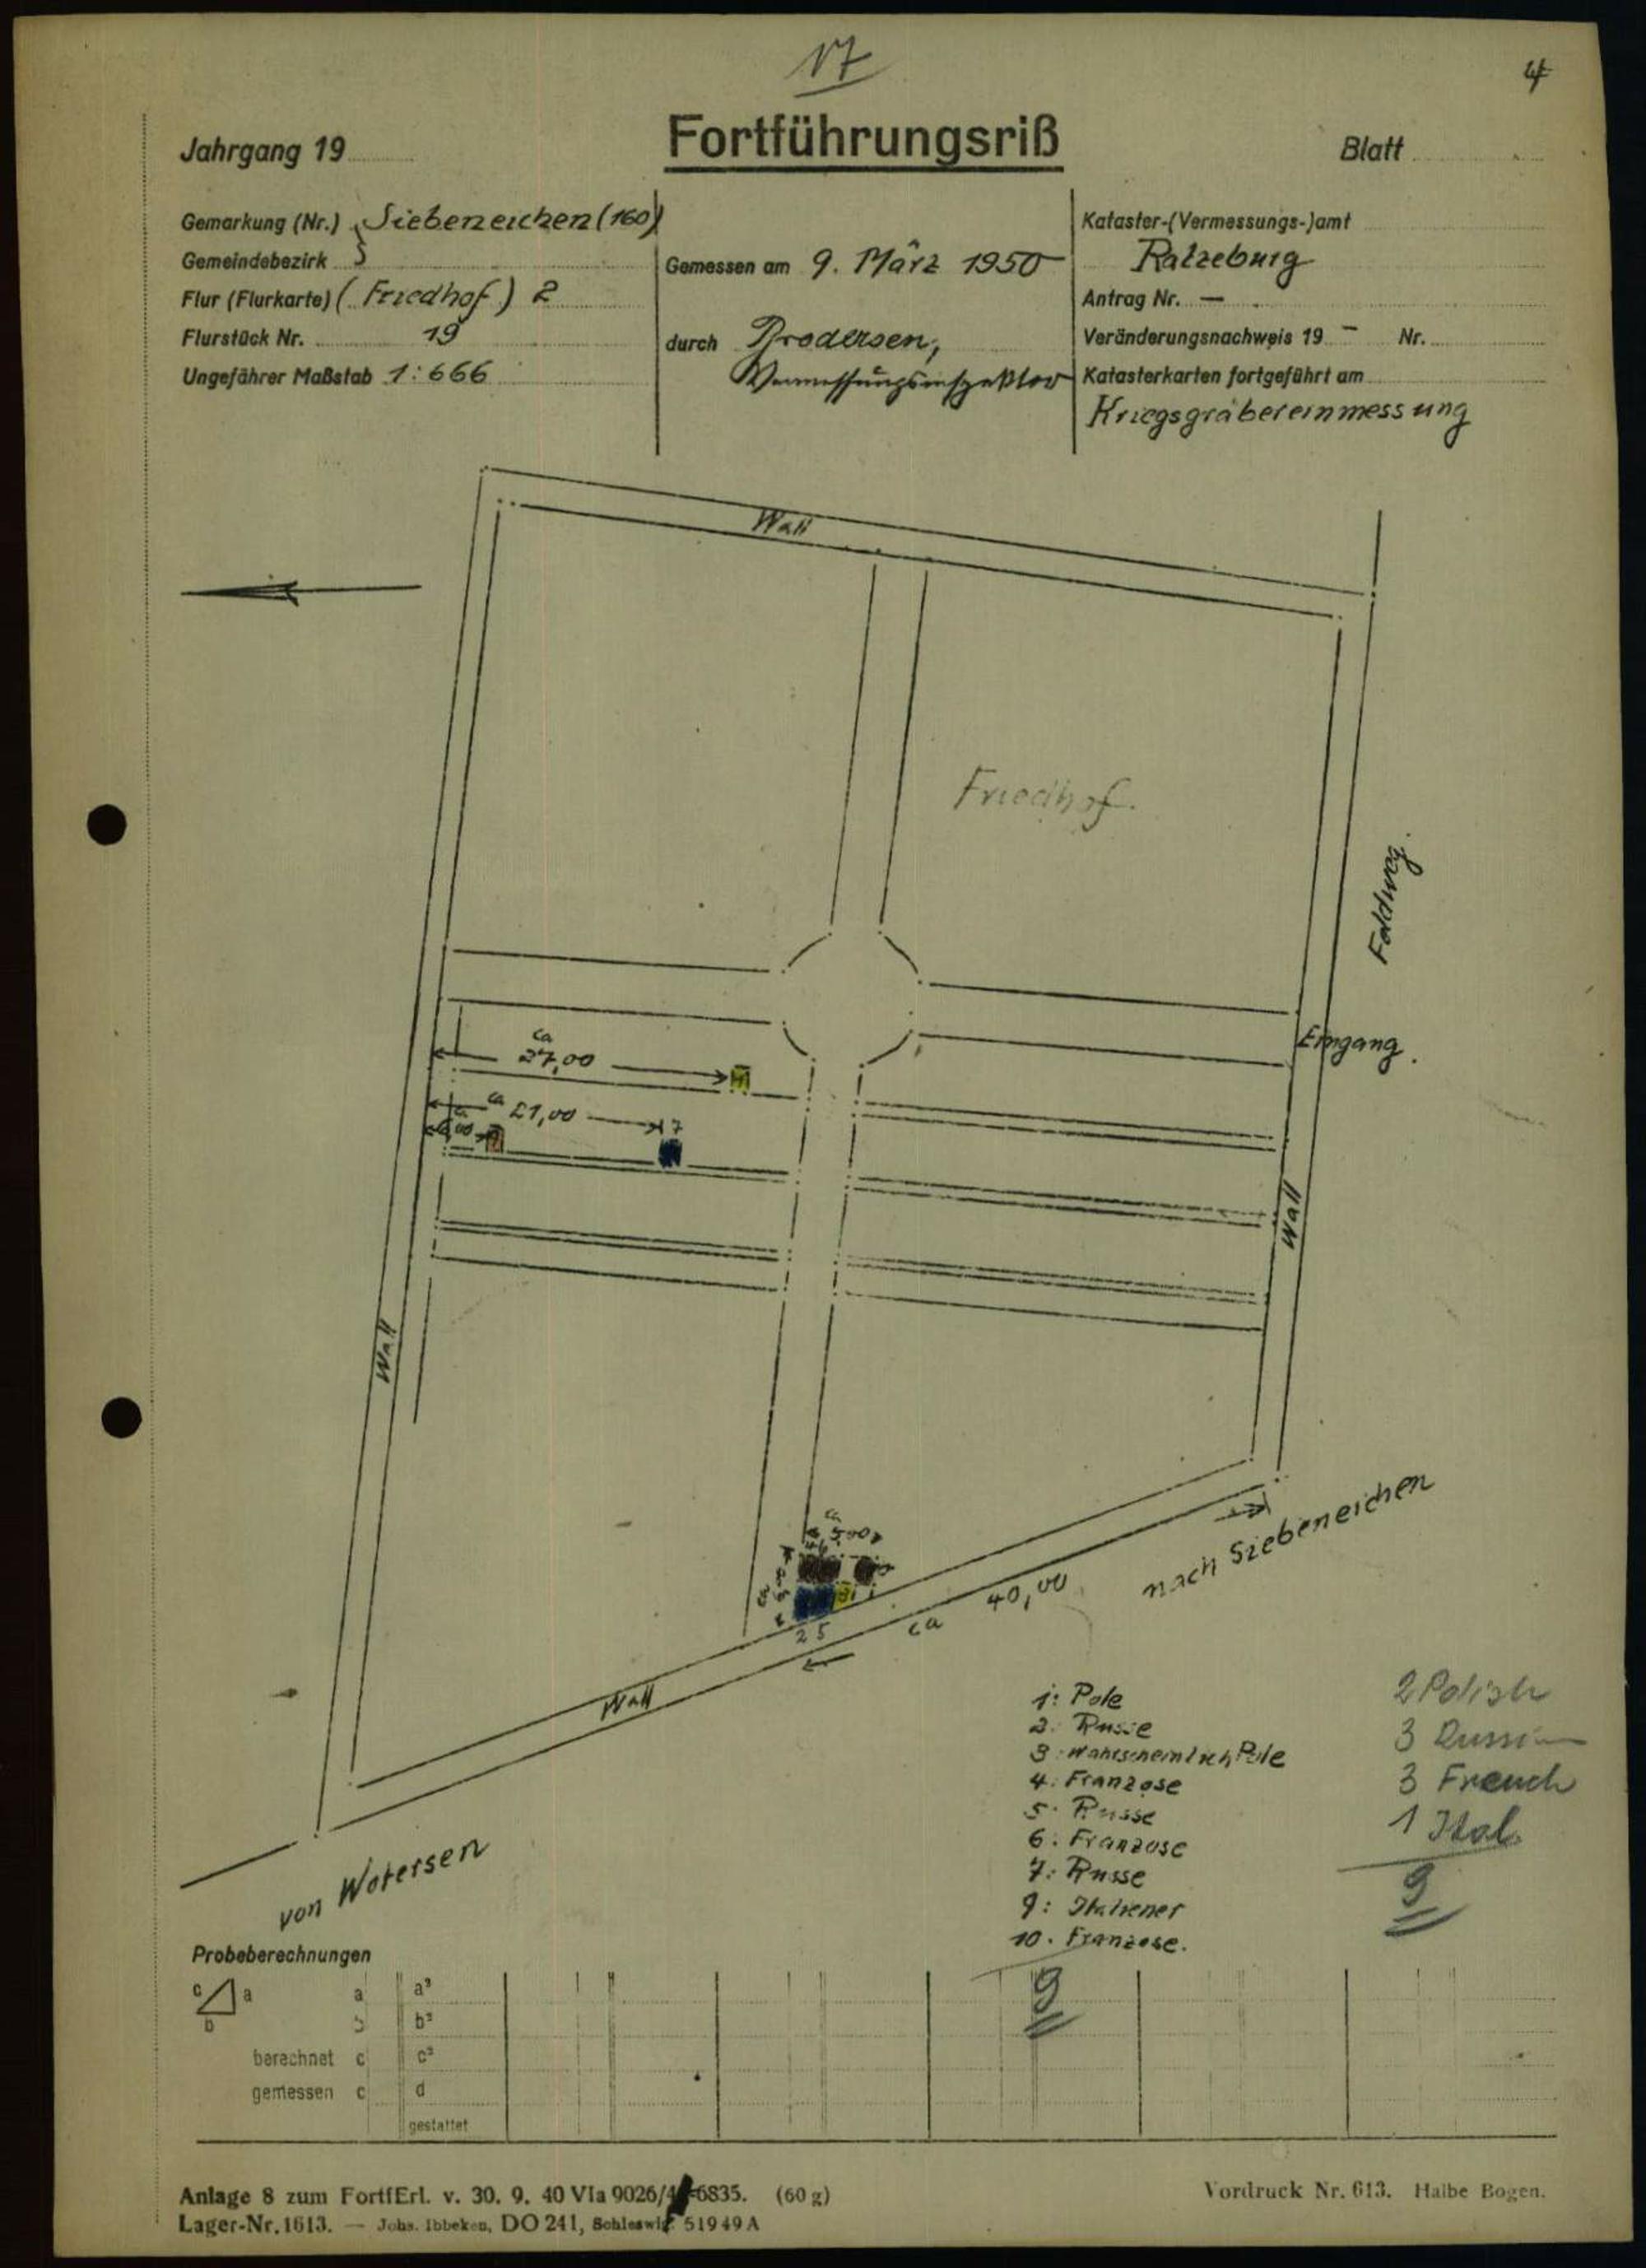 17
4
Jahrgang 19
Fortführungsriß
Blatt
Gemarkung (Nr.) Siebeneichen (160)
Gemeindebezirk
Flur (Flurkarte) (Friedhof) 2
Flurstück Nr. 19
Ungefährer Maßstab 1:666
Gemessen am 9. März 1950
durch Brodersen,
Vermessungsinspektor
Kataster-(Vermessungs-)amt
Ratzeburg
Antrag Nr. —
Veränderungsnachweis 19 — Nr.
Katasterkarten fortgeführt am
Kriegsgräbereinmessung
Wall
Friedhof.
Feldweg
Eingang.
ca
27,00
ca 21,00
7
Wall
Wall
ca
5,00
2 5
ca 40,00
nach Siebeneichen
Wall
von Wotersen
1: Pole
2: Russe
3: Wahrscheinlich Pole
4: Franzose
5: Russe
6: Franzose
7: Russe
9: Italiener
10. Franzose.
9
2 Polish
3 Russian
3 French
1 Ital.
9
Probeberechnungen
c a
b
a a²
b b²
berechnet c c²
gemessen c d
gestattet
Anlage 8 zum FortfErl. v. 30. 9. 40 VIa 9026/4 -6835. (60 g)
Lager-Nr. 1613. — Johs. Ibbeken, DO 241, Schleswig. 519 49 A
Vordruck Nr. 613. Halbe Bogen.